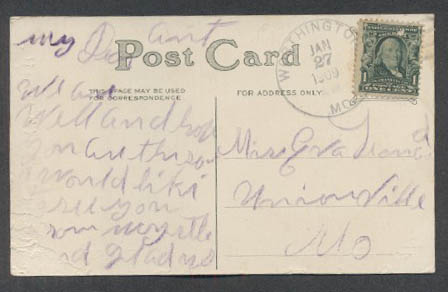 my Dear Ant
Post Card
THIS SPACE MAY BE USED
FOR CORRESPONDENCE
FOR ADDRESS ONLY
JAN
27
1909
MO.
ONE CENT
we are
Well and hope
you are the same
I would like
to see you
from myrtle
and gladus
Miss Eva
Unionville
Mo